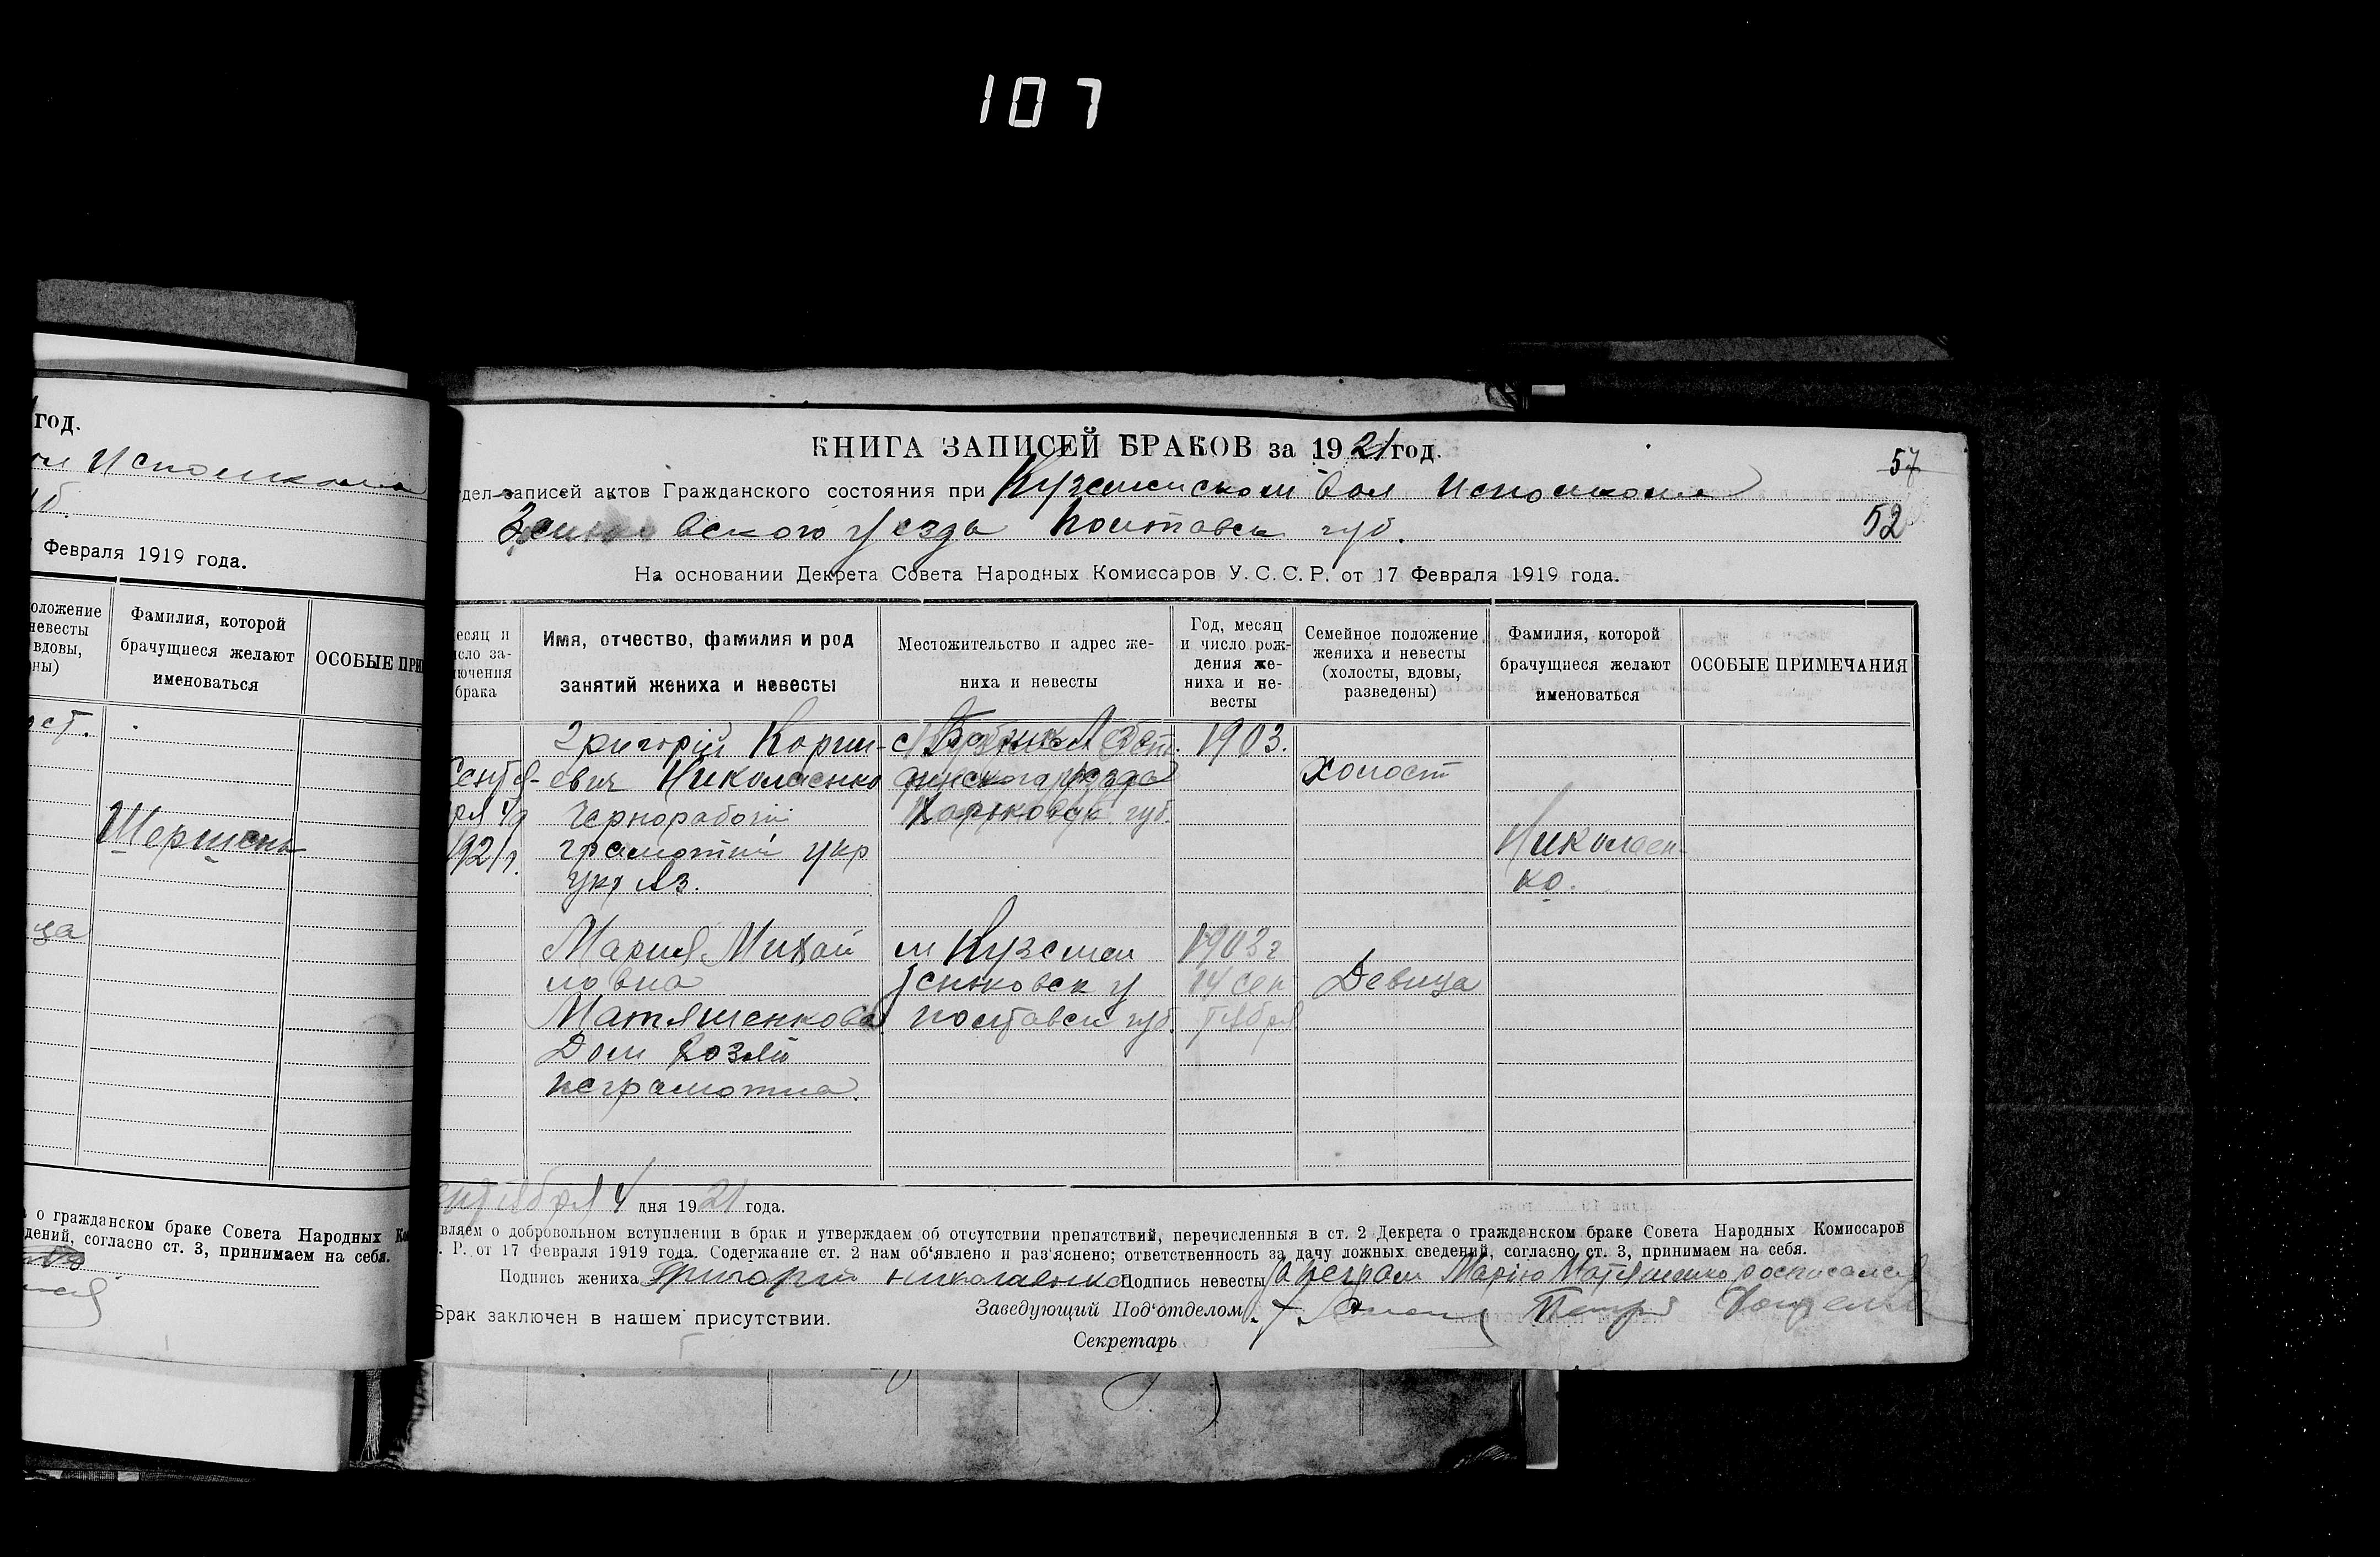 107
год.
Исполкома
Февраля 1919 года.
оложение
невесты
вдовы,
ны)
Фамилия, которой
брачущиеся желают
именоваться
ОСОБЫЕ ПРИ
ост.
Шершень
ца
о гражданском браке Совета Народных Ко
дений, согласно ст. 3, принимаем на себя.
КНИГА ЗАПИСЕЙ БРАКОВ за 1921 год.
57
дел записей актов Гражданского состояния при Куземенском Вол Исполкоме
вского уезда Полтавск губ.
52
На основании Декрета Совета Народных Комиссаров У. С. С. Р. от 17 Февраля 1919 года.
есяц и
исло за-
лючения
брака
Имя, отчество, фамилия и род
занятий жениха и невесты
Местожительство и адрес же-
ниха и невесты
Год, месяц
и число рож-
дения же-
ниха и не-
весты
Семейное положение
жениха и невесты
(холосты, вдовы,
разведены)
Фамилия, которой
брачущиеся желают
именоваться
ОСОБЫЕ ПРИМЕЧАНИЯ
Сентя-
бря 4д
1921 г.
Григорій Корни-
евич Николаенко
Чернорабочій
грамотний укр
с
уезда
Харьковск губ.
1903.
Холост
Николаен-
ко.
Мария Михай
ловна
Матяшенкова
Дом Хозяй
неграмотна.
м Куземен
у
Полтавск губ.
1903 г
14 сен
тября
Девица
ентября 4 дня 1921 года.
вляем о добровольном вступлении в брак и утверждаем об отсутствии препятствий, перечисленных в ст. 2 Декрета о гражданском браке Совета Народных Комиссаров
. Р. от 17 Февраля 1919 года. Содержание ст. 2 нам об'явлено и раз'яснено; ответственность за дачу ложных сведений, согласно ст. 3, принимаем на себя.
Подпись жениха Григорій Николаенко Подпись невесты За неграм Марію Матяшенко росписался
Брак заключен в нашем присутствии.
Заведующий Под'отделом Петро
Секретарь